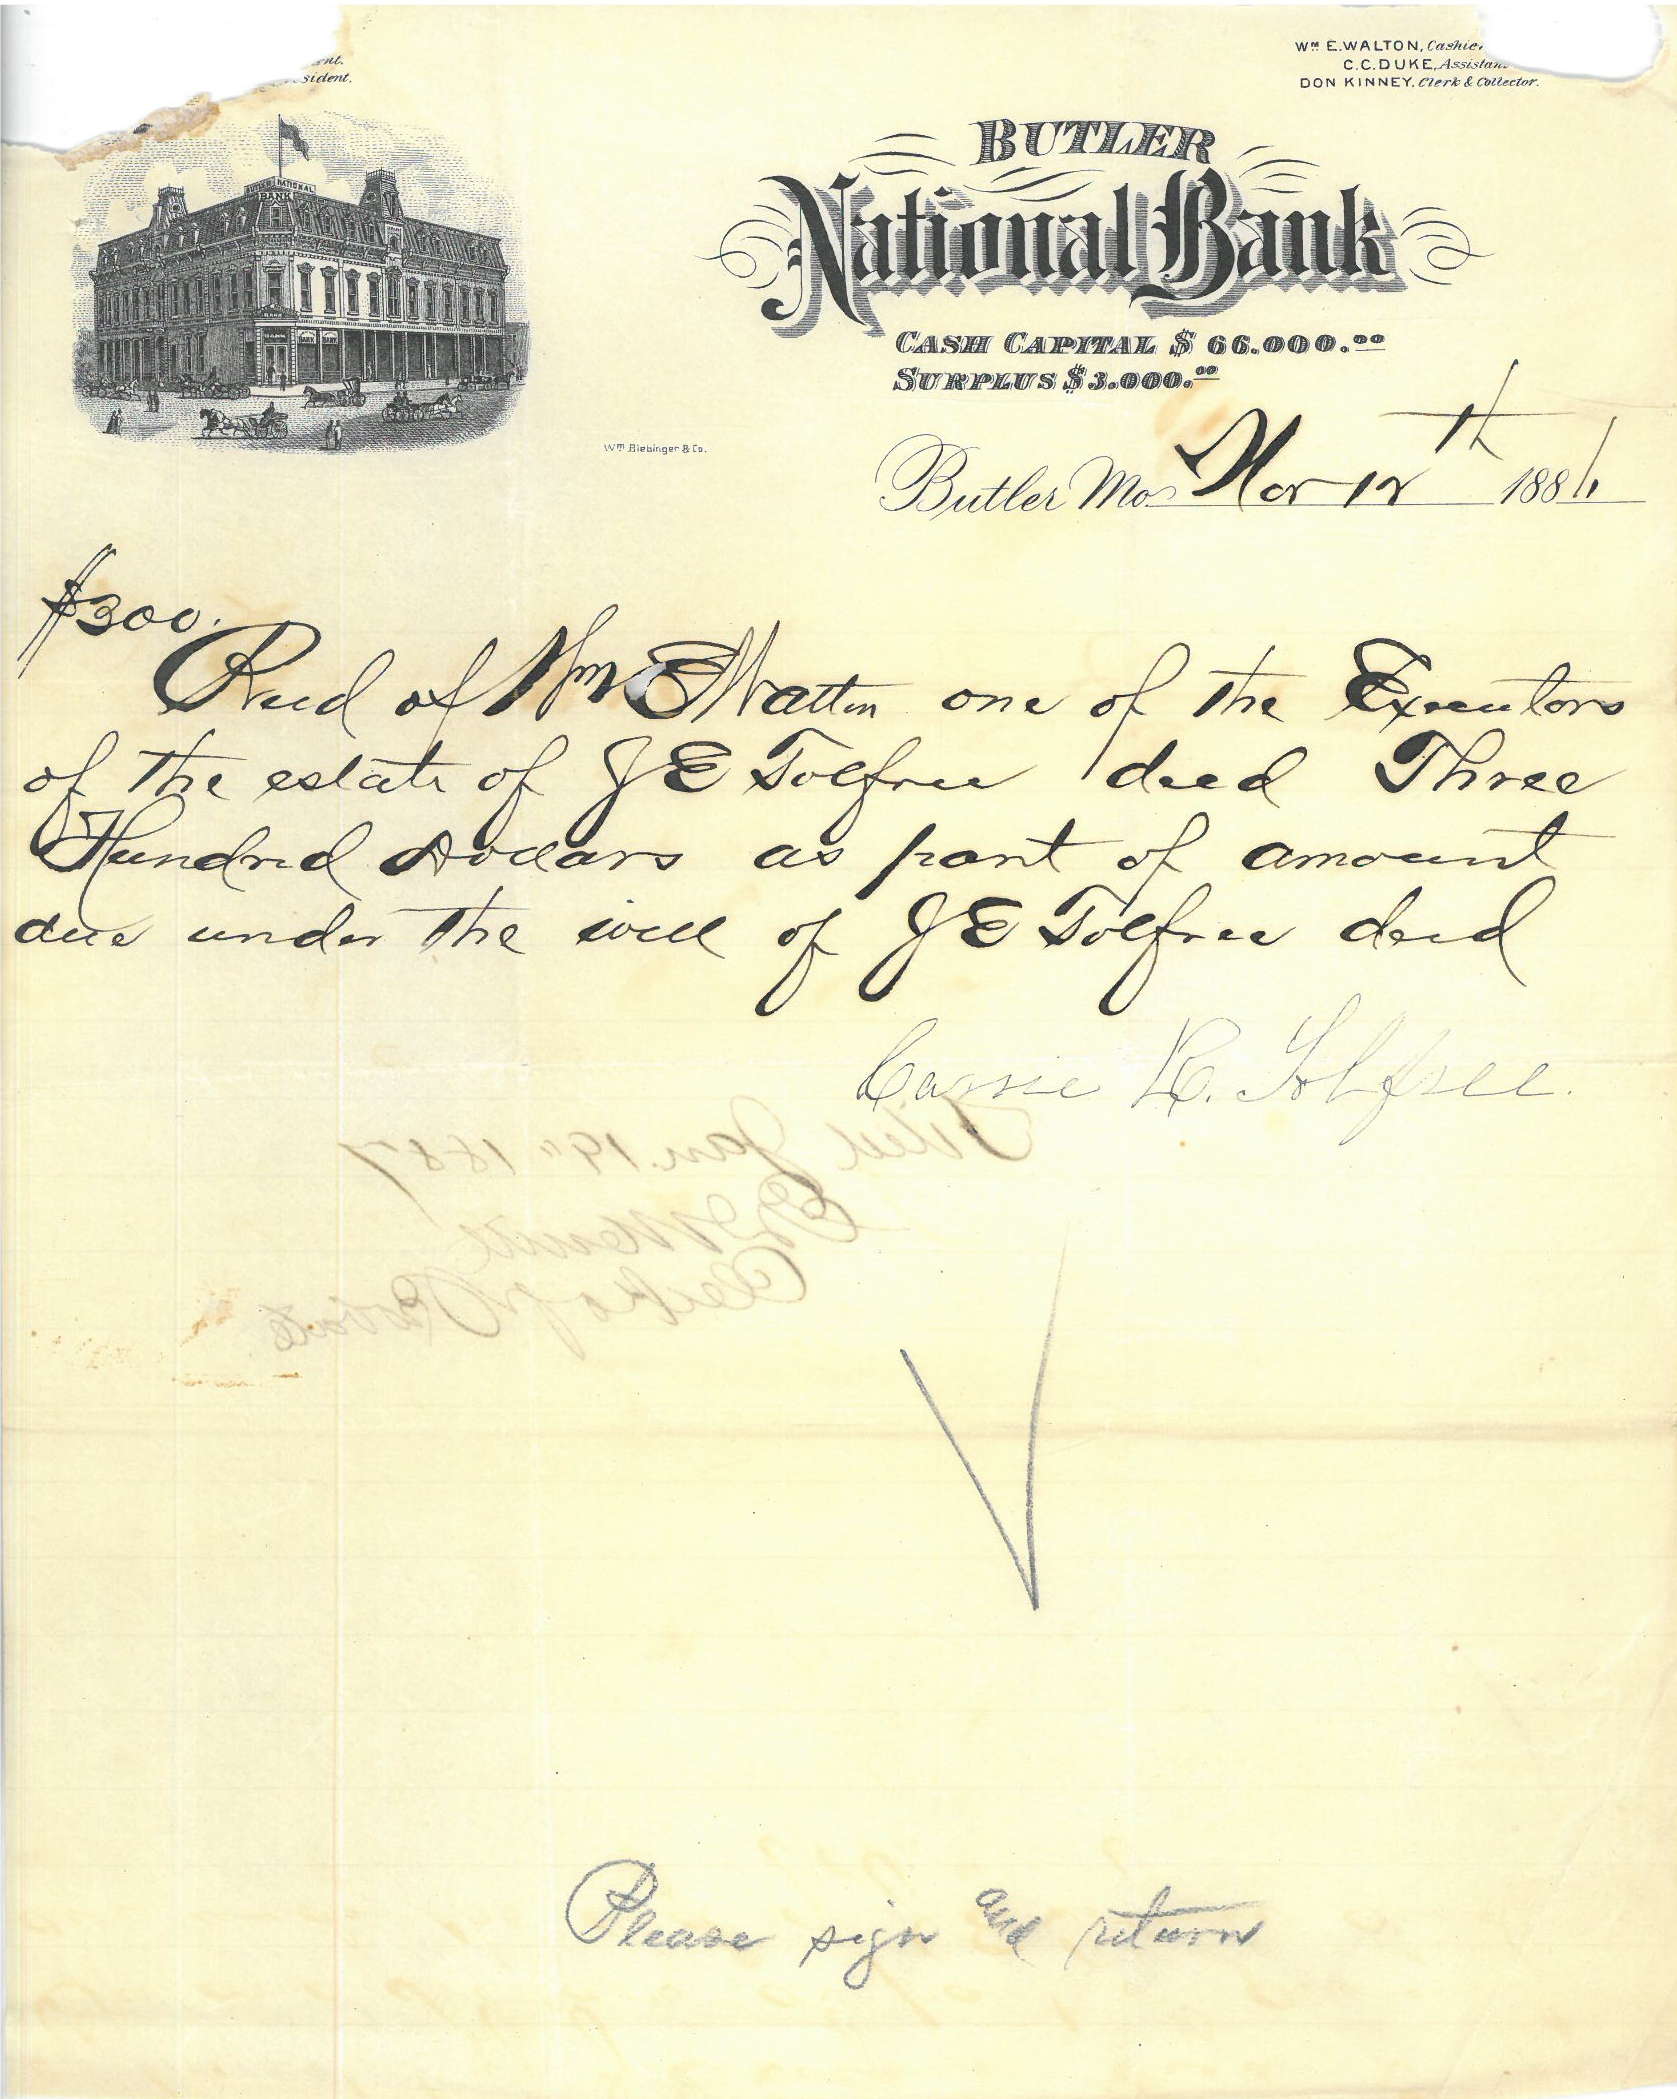 nt.
sident.
Wm E. WALTON, Cashie
C.C. DUKE, Assistan
DON KINNEY, Clerk & Collector.
BUTLER NATIONAL
BANK
BANK
BANK
BANK
BANK
BUTLER
National Bank
CASH CAPITAL $ 66.000.00
SURPLUS $ 3.000.00
Wm Biebinger & Co.
Butler Mo. Nov 12th 1886
$300.
Recd of Wm E Walton one of the Executors
of the estate of J E Tolfree decd Three
Hundred Dollars as part of amount
due under the will of J E Tolfree decd
Carrie R. Tolfree.
Filed Jan. 19" 1887
Clerk of Probate
Please sign and return